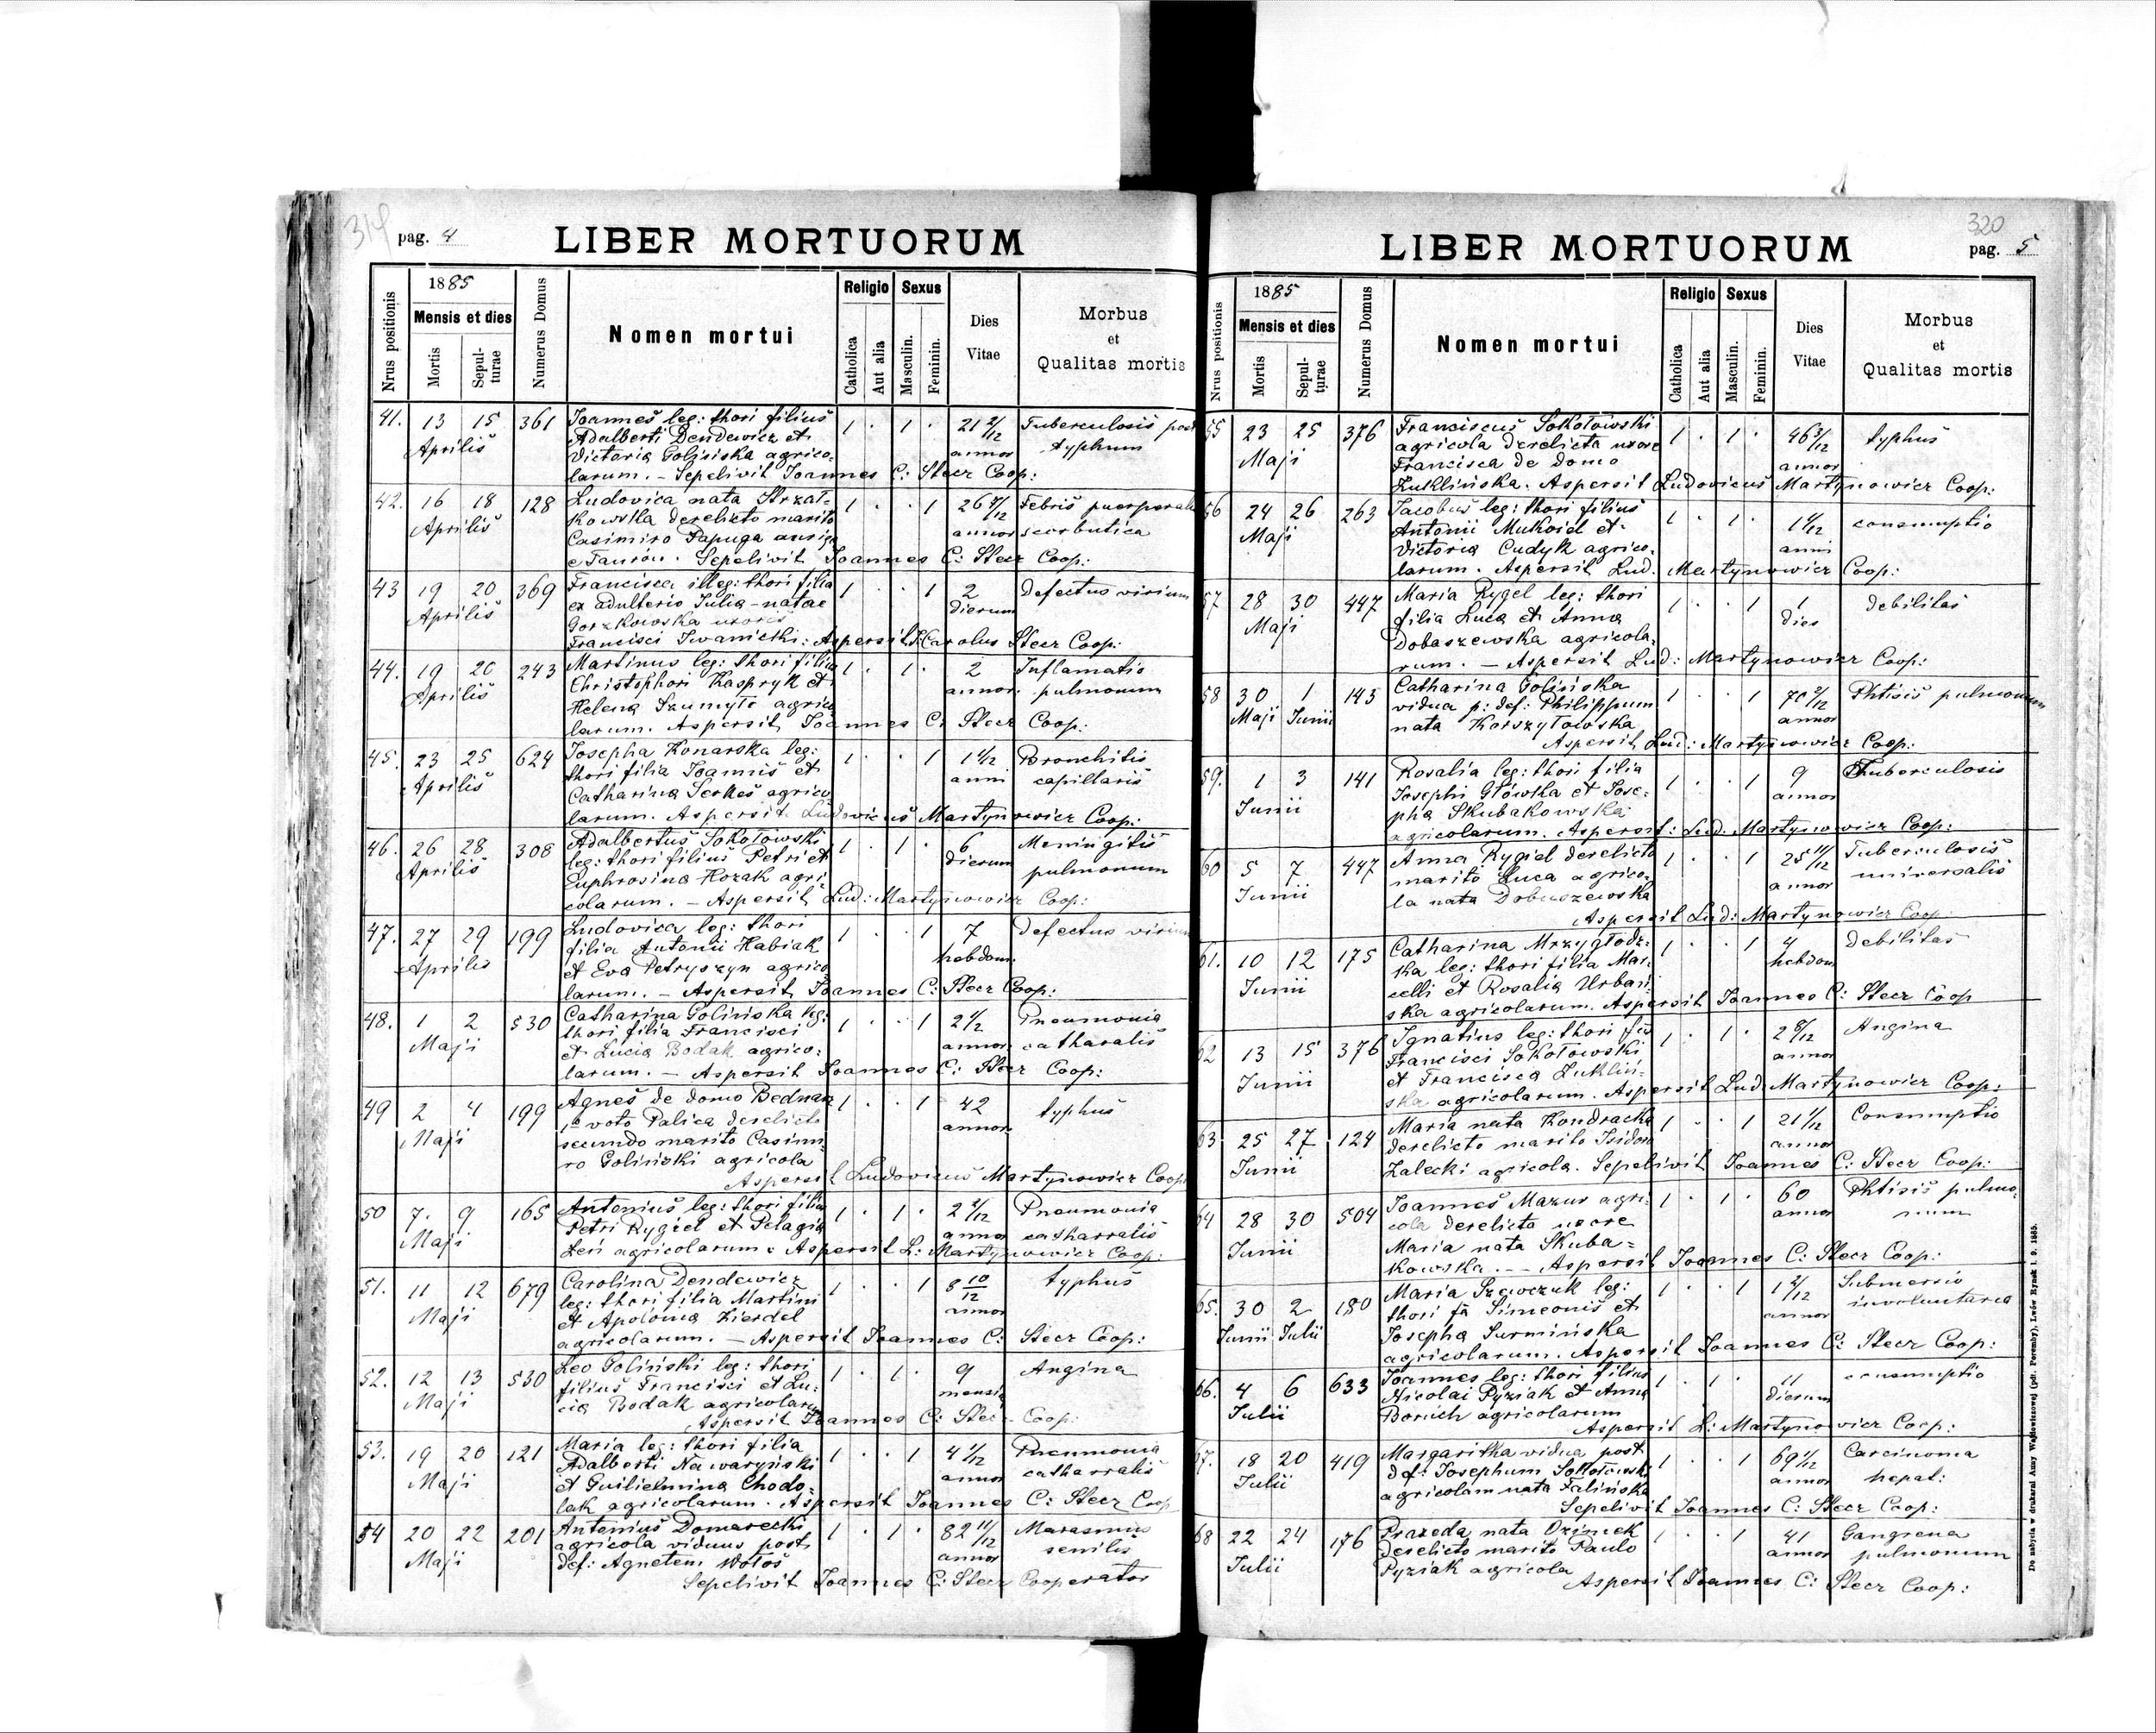 319
pag. 4
LIBER MORTUORUM
Nrus positionis
1885
Mensis et dies
Mortis
Sepul-
turae
Numerus Domus
Nomen mortui
Religio
Catholica
Aut alia
Sexus
Masculin.
Feminin.
Dies
Vitae
Morbus
et
Qualitas mortis
41. 13 15 361 Joannes leg: thori filius 1 · 1 · 21 2/12 Tuberculosis post
Aprilis Adalberti Dendewicz et annor typhum
Victoria Golinska agrico-
larum. - Sepelivit Joannes C: Steer Coop:
42. 16 18 128 Ludovica nata Strzał- 1 · · 1 Febris puerperalis
Aprilis kowska derelicto marito annor scorbutica
Casimiro Papuga auriga
e Taurów. Sepelivit Joannes C: Steer Coop:
43 19 20 369 Francisca illeg: thori filia 1 · · 1 2 Defectus virium
Aprilis ex adulterio Julia - natae dierum
Gorzkowska uxoris
Francisci Iwanicki: Aspersit Carolus Steer Coop:
44. 19 20 243 Martinus leg: thori filius 1 · 1 · 2 Inflamatio
Aprilis Christophori Kaspryk et annor. pulmonum
Helena Szumyło agrico
larum. Aspersit Joannes C: Steer Coop:
45. 23 25 624 Josepha Konarska leg: 1 · · 1 1 1/12 Bronchitis
Aprilis thori filia Joannis et anni capillaris
Catharina Serkeš agrico
larum. Aspersit Ludovicus Martynowicz Coop:
46. 26 28 308 Adalbertus Sokołowski 1 · 1 · 6 Meningitis
Aprilis leg: thori filius Petri et dierum pulmonum
Euphrosina Kozak agri-
colarum. - Aspersit Lud: Martynowicz Coop:
47. 27 29 199 Ludovica leg: thori 1 · · 1 7 Defectus virium
Aprilis filia Antonii Habiak hebdom.
et Eva Petryszyn agrico
larum. - Aspersit Joannes C: Steer Coop:
48. 1 2 530 Catharina Golińska leg: 1 · · 1 2 1/2 Pneumonia
Maji thori filia Francisci annor. catharalis
et Lucia Bodak agrico:
larum. - Aspersit Joannes C: Steer Coop:
49 2 4 199 Agnes de domo Bednarz 1 · · 1 42 typhus
Maji 1o voto Palica derelicto annor.
secundo marito Casimi-
ro Goliński agricola
Aspersit Ludovicus Martynowicz Coop:
50 7. 9 165 Antonius leg: thori filius 1 · 1 · 2 2/12 Pneumonia
Maji Petri Rygiel et Pelagia annor catharralis
Leń agricolarum. Aspersit L: Martynowicz Coop:
51. 11 12 679 Carolina Dendewicz 1 · · 1 8 10/12 typhus
Maji leg: thori filia Martini annor
et Apolonia Zierdel
agricolarum. - Aspersit Joannes C: Steer Coop:
52. 12 13 530 Leo Goliński leg: thori 1 · 1 · 9 Angina
Maji filius Francisci et Lu- mensis
cia Bodak agricolarum
Aspersit Joannes C: Steer Coop:
53. 19 20 121 Maria leg: thori filia 1 · · 1 4 1/12 Pneumonia
Maji Adalberti Nawaryński annor catharralis
et Guilielmina Chodo-
lak agricolarum. Aspersit Joannes C: Steer Coop
54 20 22 201 Antonius Domarecki 1 · 1 · 82 11/12 Marasmus
Maji agricola viduus post annor senilis
def: Agnetem Wołoš
Sepelivit Joannes C: Steer Cooperator
320
pag. 5
LIBER MORTUORUM
Nrus positionis
1885
Mensis et dies
Mortis
Sepul-
turae
Numerus Domus
Nomen mortui
Religio
Catholica
Aut alia
Sexus
Masculin.
Feminin.
Dies
Vitae
Morbus
et
Qualitas mortis
55 23 25 376 Franciscus Sokołowski 1 · 1 · 46 3/12 typhus
Maji agricola derelicta uxore annor
Francisca de domo
Zuklińska. Aspersit Ludovicus Martynowicz Coop:
56 24 26 263 Jacobus leg: thori filius 1 · 1 · consumptio
Maji Antonii Mukoid et anni
Victoria Cudyk agrico-
larum. Aspersit Lud. Martynowicz Coop:
57 28 30 447 Maria Rygel leg: thori 1 · · 1 1 debilitas
Maji filia Luca et Anna dies
Dobaszewska agricola-
rum. - Aspersit Lud: Martynowicz Coop:
58 30 1 143 Catharina Golińska 1 · · 1 70 2/12 Phtisis pulmonum
Maji Junii vidua p: def: Philippum annor
nata Korszyłowska
Aspersit Lud: Martynowicz Coop:
59. 1 3 141 Rosalia leg: thori filia 1 · · 1 9 Thuberculosis
Junii Josephi Główka et Jose- annor
pha Skubakowska
agricolarum. Aspersit: Lud. Martynowicz Coop:
60 5 7 447 Anna Rygiel derelicto 1 · · 1 25 11/12 Tuberculosis
Junii marito Luca agrico- annor universalis
la nata Dobuszewska
Aspersit Lud: Martynowicz Coop:
61. 10 12 175 Catharina Mrzygłodz- 1 · · 1 4 debilitas
Junii ka leg: thori filia Mar- hebdom
celli et Rosalia Urbań-
ska agricolarum. Aspersit Joannes C: Steer Coop
62 13 15 376 Ignatius leg: thori fis 1 · 1 · 2 8/12 Angina
Junii Francisci Sokołowski annor
et Francisca Zuklin-
ska agricolarum. Aspersit Lud: Martynowicz Coop:
63 25 27 124 Maria nata Kondracka 1 · · 1 21 1/12 Consumptio
Junii derelicto marito Isidoro annor
Zalecki agricola. Sepelivit Joannes C: Steer Coop:
64 28 30 504 Joannes Mazur agri- 1 · 1 · 60 Phtisis pulmo-
Junii cola derelicta uxore annor num
Maria nata Skuba=
kowska. -- Aspersit Joannes C: Steer Coop:
65. 30 2 180 Maria Szewczuk leg: 1 · · 1 1 2/12 Submersio
Junii Julii thori fa Simeonis et annor involuntaria
Josepha Surmińska
agricolarum. Aspersit Joannes C: Steer Coop:
66. 4 6 633 Joannes leg: thori filius 1 · 1 · 11 consumptio
Julii Nicolai Pyziak et Anna dierum
Boruch agricolarum
Aspersit L: Martynowicz Coop:
67. 18 20 419 Margaritha vidua post 1 · · 1 69 1/12 Carcinoma
Julii def: Josephum Sokołowski annor hepat:
agricolam nata Falińska
Sepelivit Joannes C: Steer Coop:
68 22 24 176 Praxeda nata Ozimek 1 · · 1 41 Gangrena
Julii derelicto marito Paulo annor pulmonum
Pyziak agricola
Aspersit Joannes C: Steer Coop: